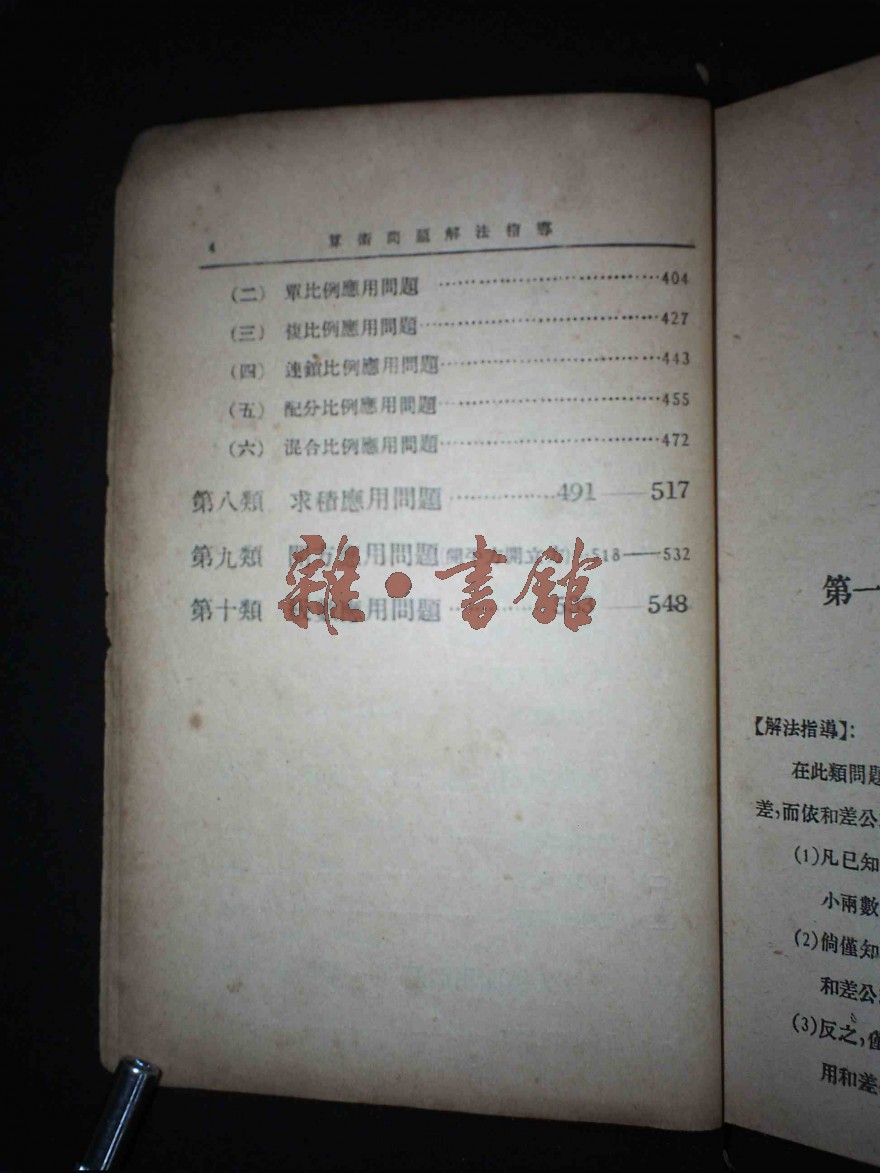 4 算術問題解法指導
(二) 單比例應用問題 ……………………404
(三) 複比例應用問題……………………427
(四) 連鎖比例應用問題……………………443
(五) 配分比例應用問題……………………455
(六) 混合比例應用問題……………………472
第八類 求積應用問題……………491——517
第九類 開方應用問題(開平方開立方)…518——532
第十類 應用問題……………533——548
雜·書館
第一
【解法指導】:
在此類問題
差,而依和差公
(1)凡已知
小兩數
(2)倘僅知
和差公
(3)反之,僅
用和差